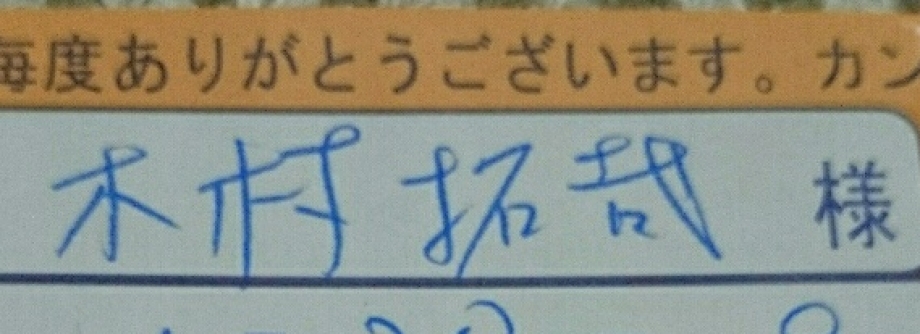 毎度ありがとうございます。カン
木村 拓哉 様